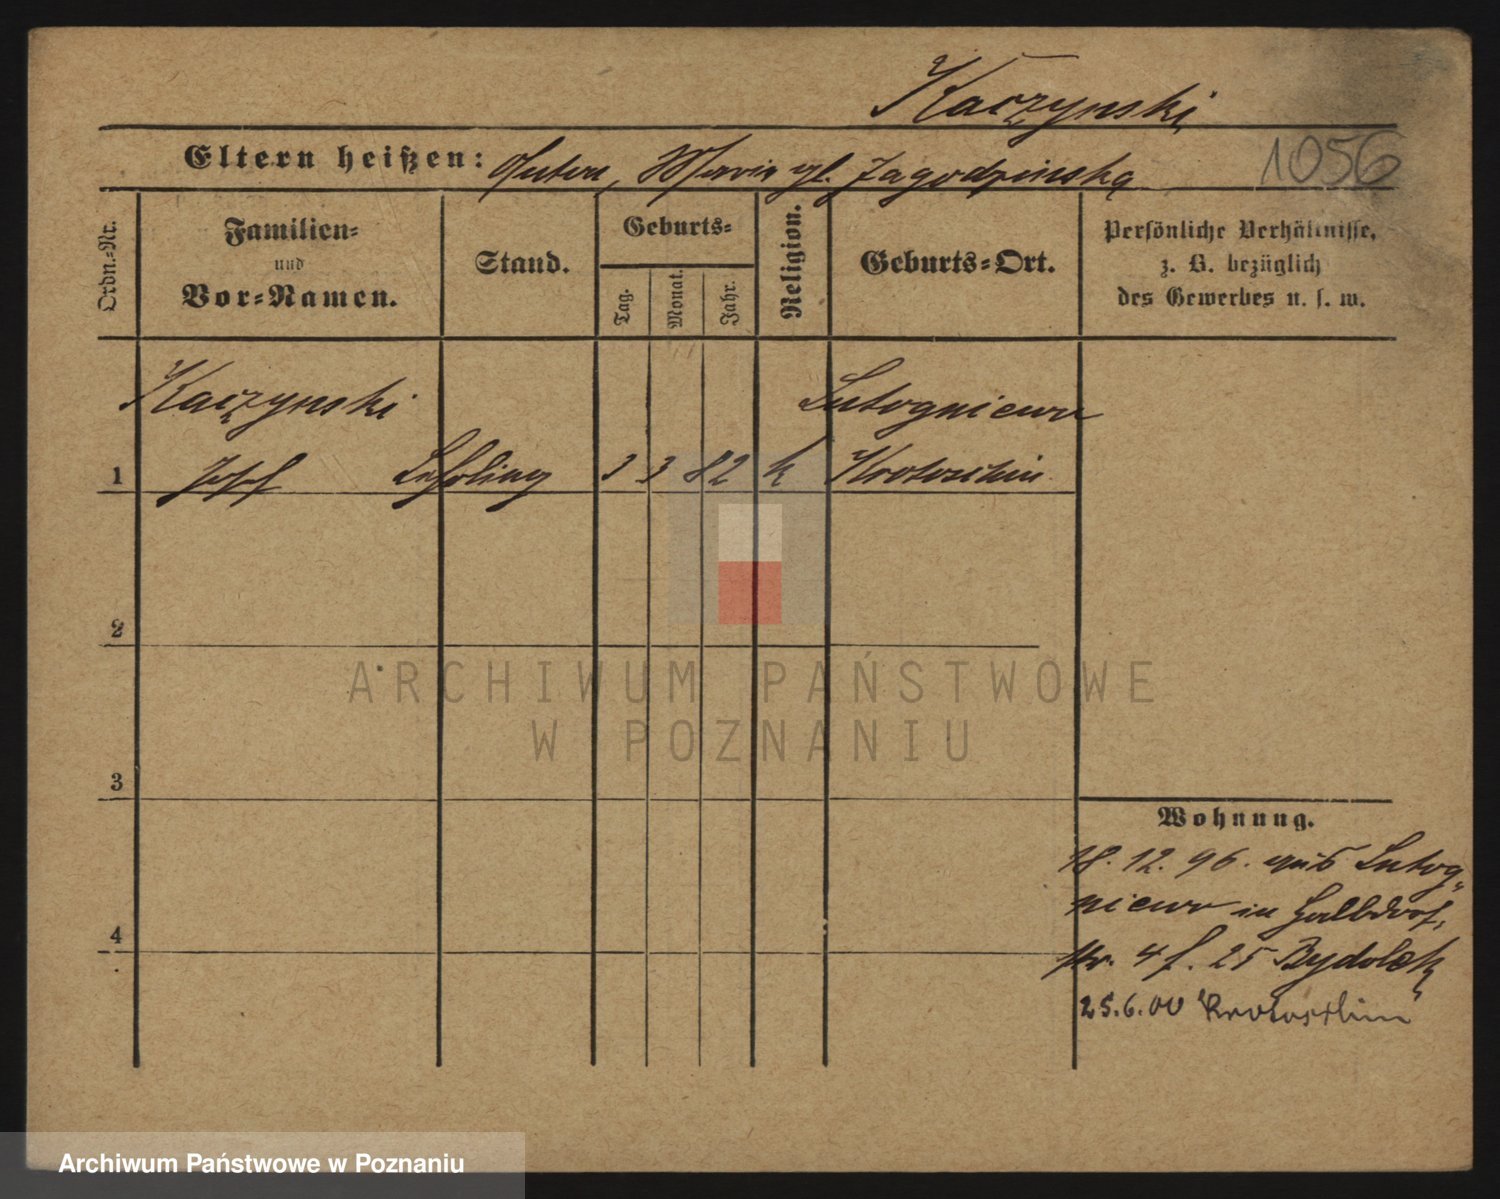 Kaczynski
Eltern heißen: Anton, Maria gb. Jagodzinska
1056
Ordn.-Nr.
Familien-
und
Vor-Namen.
Stand.
Geburts-
Tag.
Monat.
Jahr.
Religion.
Geburts-Ort.
Persönliche Verhältnisse,
z. B. bezüglich
des Gewerbes u. s. w.
Kaczynski
Lutogniewo
1 Josef Lehrling 3 3 82 k Krotoschin
2
3
4
ARCHIWUM PAŃSTWOWE
W POZNANIU
Wohnung.
18. 12. 96. aus Lutog-
niewo in Halbdorf-
str. 4 f. 25
25.6.00 Krotoschin
Archiwum Państwowe w Poznaniu